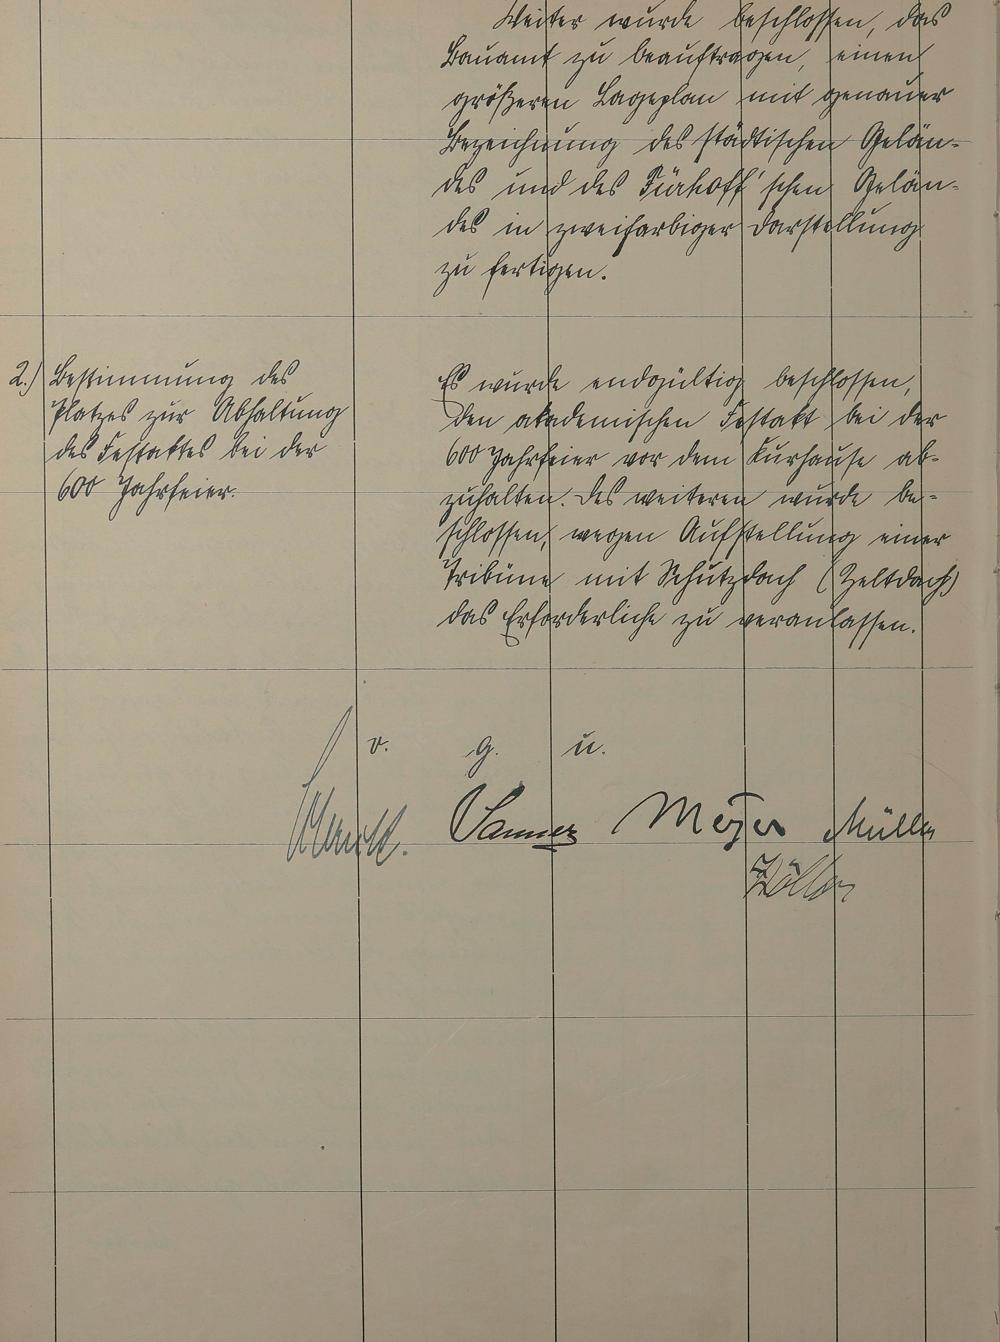 Weiter wurde beschlossen, das
Bauamt zu beauftragen, einen
größeren Lageplan mit genauer
Bezeichnung des städtischen Gelän-
des und des Fürhoff'schen Gelän-
des in zweifarbiger Darstellung
zu fertigen.
2.) Bestimmung des
Platzes zur Abhaltung
des Festaktes bei der
600 Jahrfeier.
Es wurde endgültig beschlossen,
den akademischen Festakt bei der
600 Jahrfeier vor dem Kurhause ab-
zuhalten. Des weiteren wurde be-
schlossen, wegen Aufstellung einer
Tribüne mit Schutzdach (Zeltdach)
das Erforderliche zu veranlassen.
v. g. u.
Meyer Müller